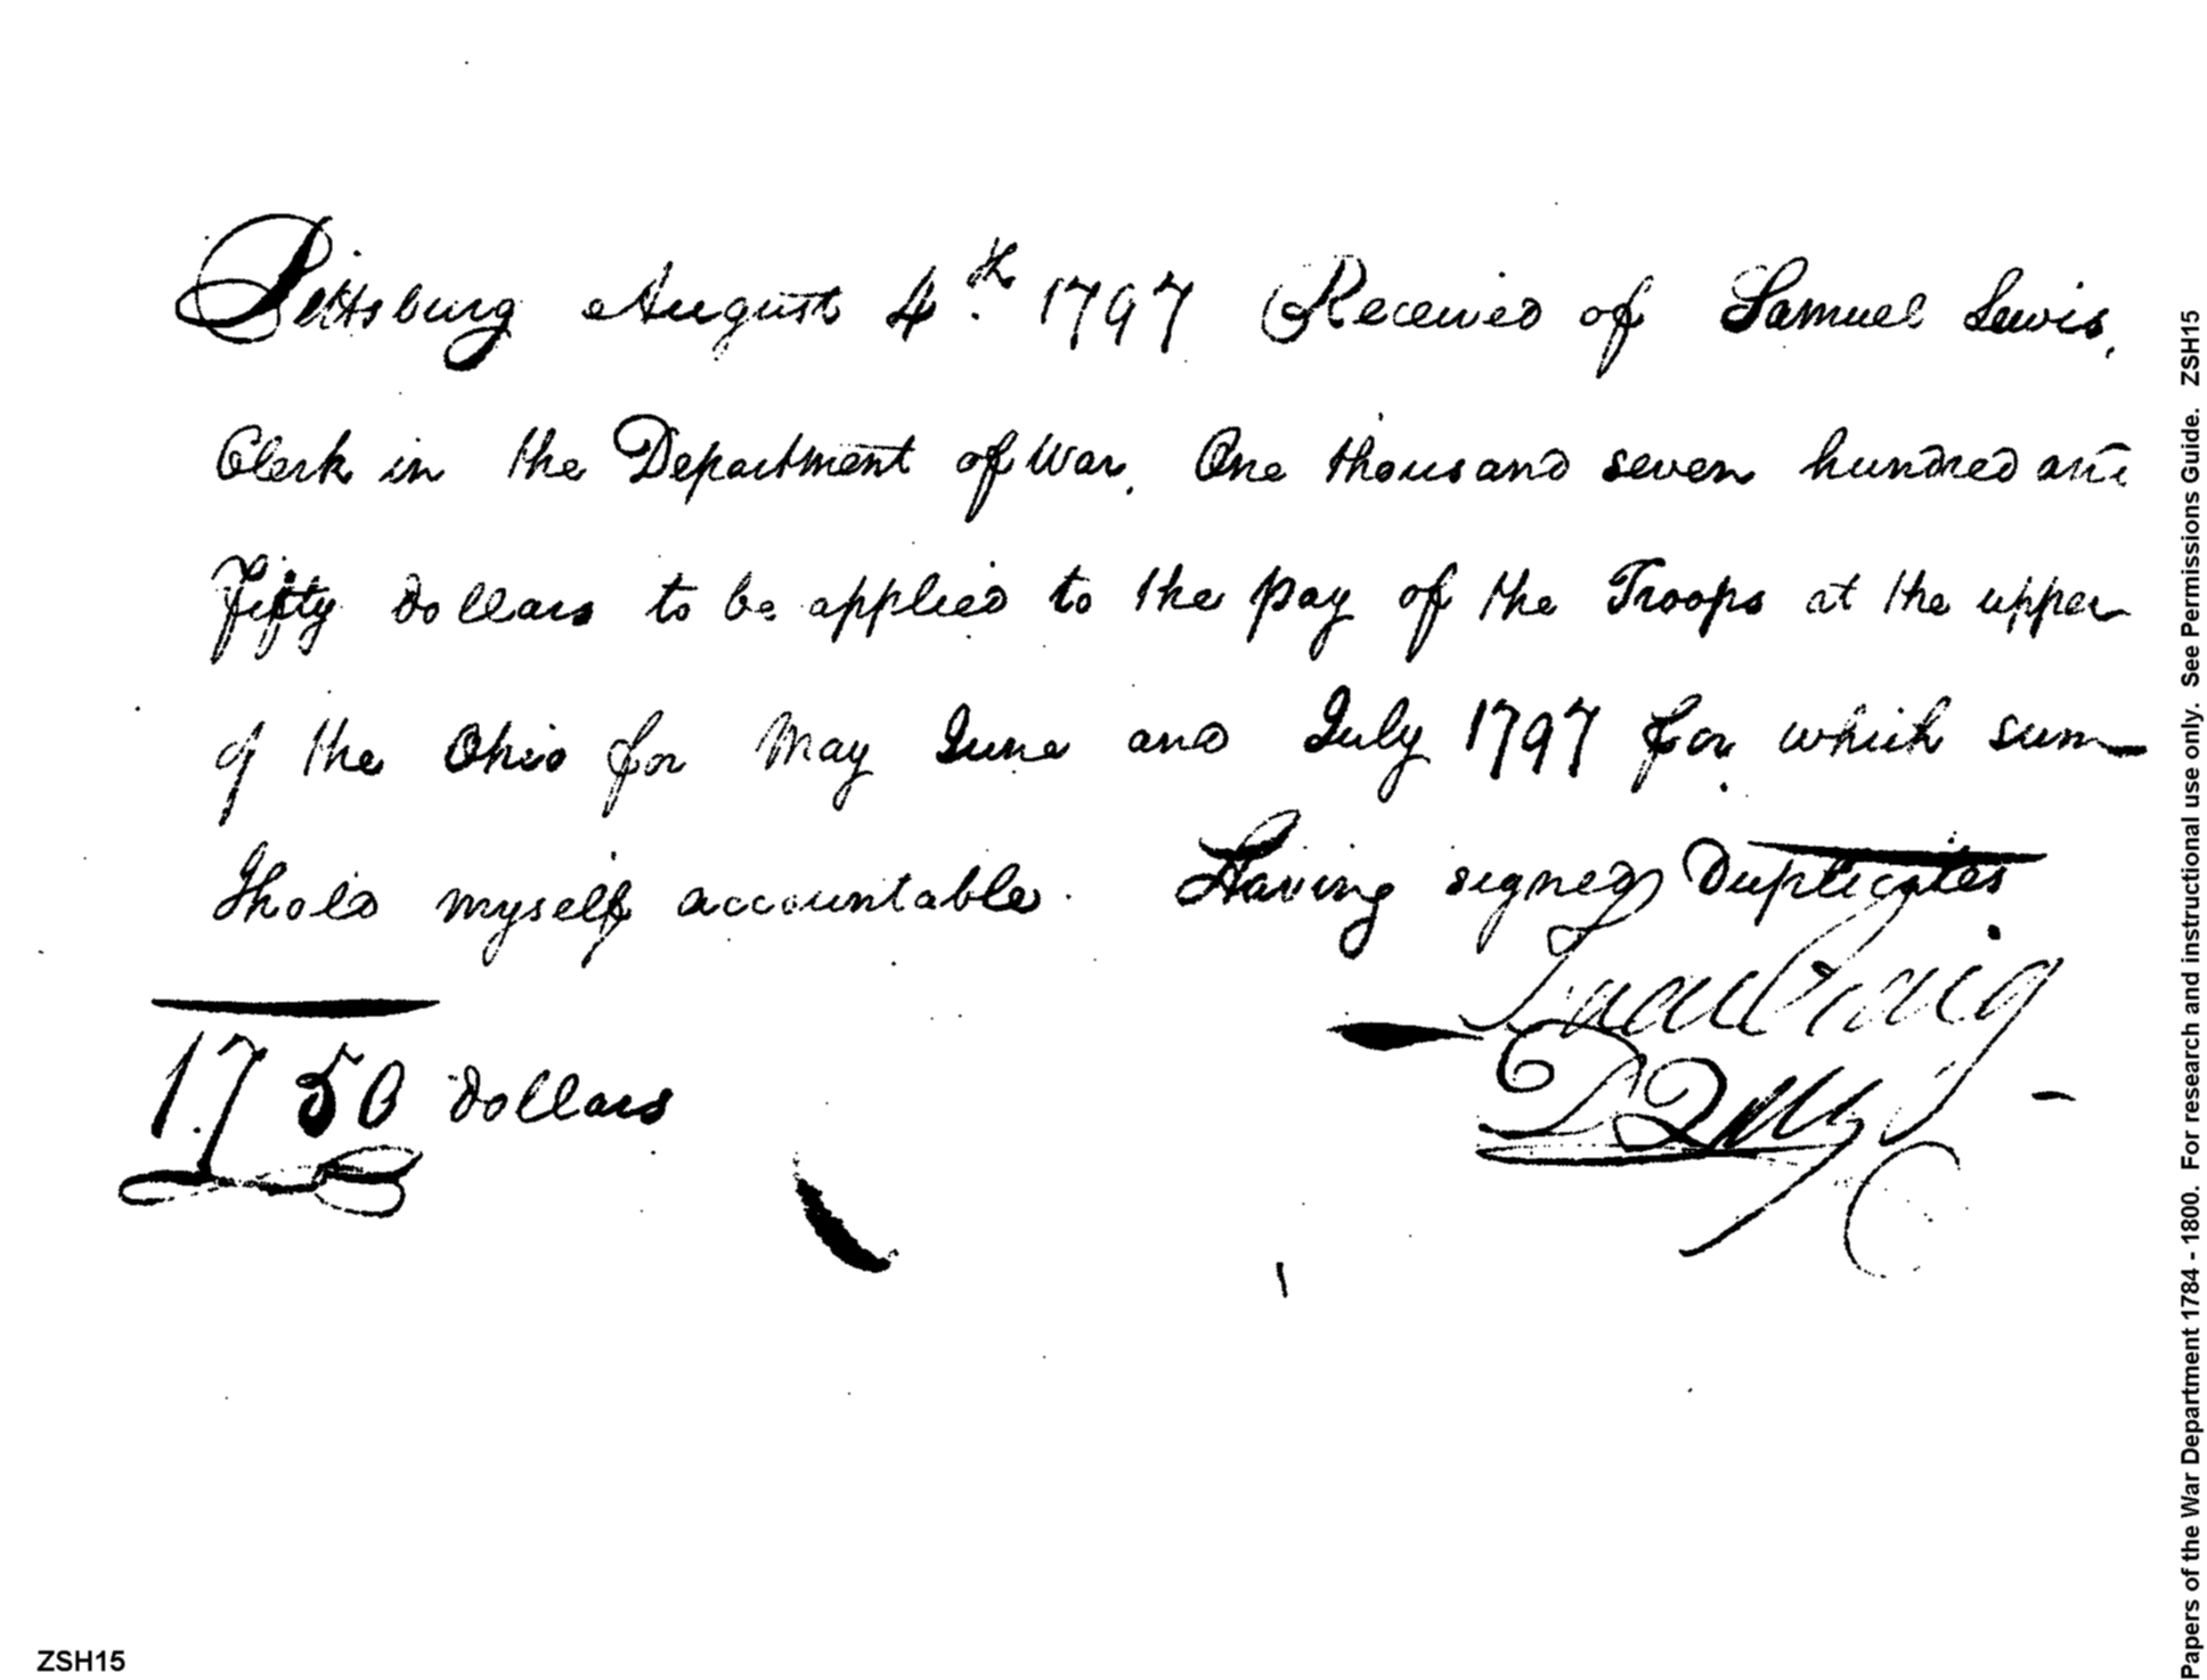 Pittsburg August 4th 1797 Received of Samuel Lewis,
Clerk in the Department of War, One thousand seven hundred and
fifty dollars to be applied to the pay of the Troops at the upper
of the Ohio for May June and July 1797 for which sum
I hold myself accountable. Having signed Duplicates
1750 dollars
ZSH15
Papers of the War Department 1784 - 1800. For research and instructional use only. See Permissions Guide. ZSH15